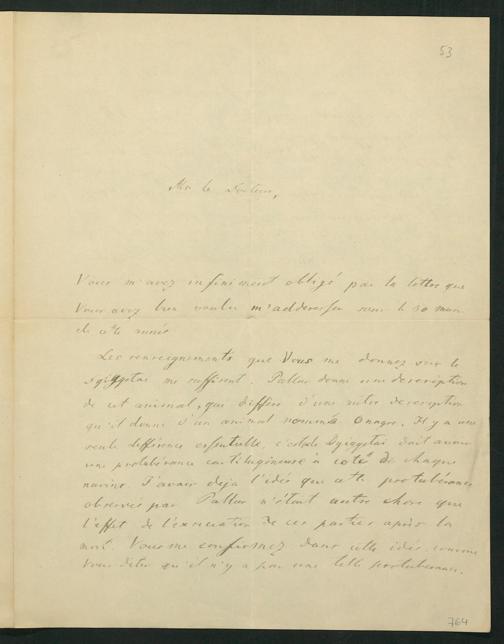 53
Mr le Docteur,
Vous m'avez infiniment obligé par la lettre que
Vous avez bien voulu m'addresser sous le 30 mars
de cette année
Les renseignements que Vous me donnez sur le
me suffisent. Pallas donne une description
de cet animal, qui differe d'une autre description
qu'il donne d'un animal nommé Onagre. Il y a une
seule différence essentielle, c'est le Dziggetai doit avoir
une protubérance cartilagineuse à coté de chaque
narine. J'avais deja l'idée que cette protubérance
observée par Pallas n'étant autre chose que
l'effet de l'exsiccation de ces parties après la
mort. Vous me confirmez dans cette idée, comme
Vous dites qu'il n'y a pas une telle protubérance.
764